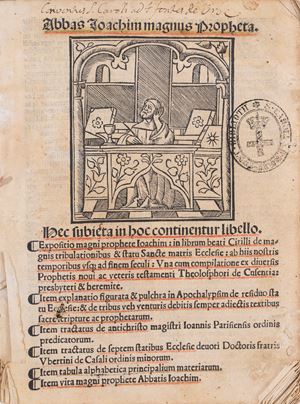 Conventus S. Caroli ad
Abbas Ioachim magnus Propheta.
Hec subiecta in hoc continentur libello.
Expositio magni prophete Ioachim: in librum beati Cirilli de ma-
gnis tribulationibus & statu Sancte matris Ecclesie: ab hiis nostris
temporibus vsq; ad finem seculi: Vna cum compilatione ex diuersis
Prophetis noui ac veteris testamenti Theolosphori de Cusentia:
presbyteri & heremite.
Item explanatio figurata & pulchra in Apochalypsim de residuo sta
tu Ecclesie: & de tribus veh venturis debitis semper adiectis textibus
sacre scripture ac prophetarum.
Item tractatus de antichristo magistri Ioannis Parisiensis ordinis
predicatorum.
Item tractatus de septem statibus Ecclesie deuoti Doctoris fratris
Vbertini de Casali ordinis minorum.
Item tabula alphabetica principalium materiarum.
Item vita magni prophete Abbatis Ioachim.